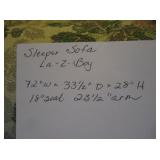 Sleeper Sofa
La-Z-Boy
72" w x 33½" D x 28" H
18" seat 23½" arm